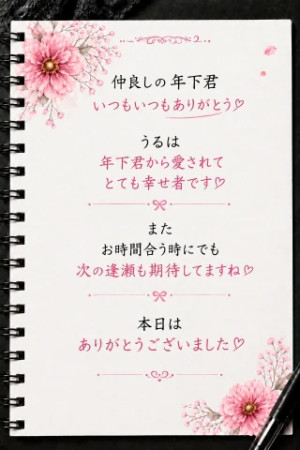 仲良しの年下君
いつもいつもありがとう♡
うるは
年下君から愛されて
とても幸せ者です♡
また
お時間合う時にでも
次の逢瀬も期待してますね♡
本日は
ありがとうございました♡